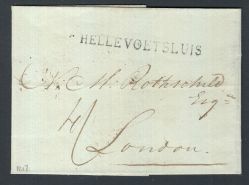 HELLEVOETSLUIS
N. M. Rothschild
Esqr
4/
London.